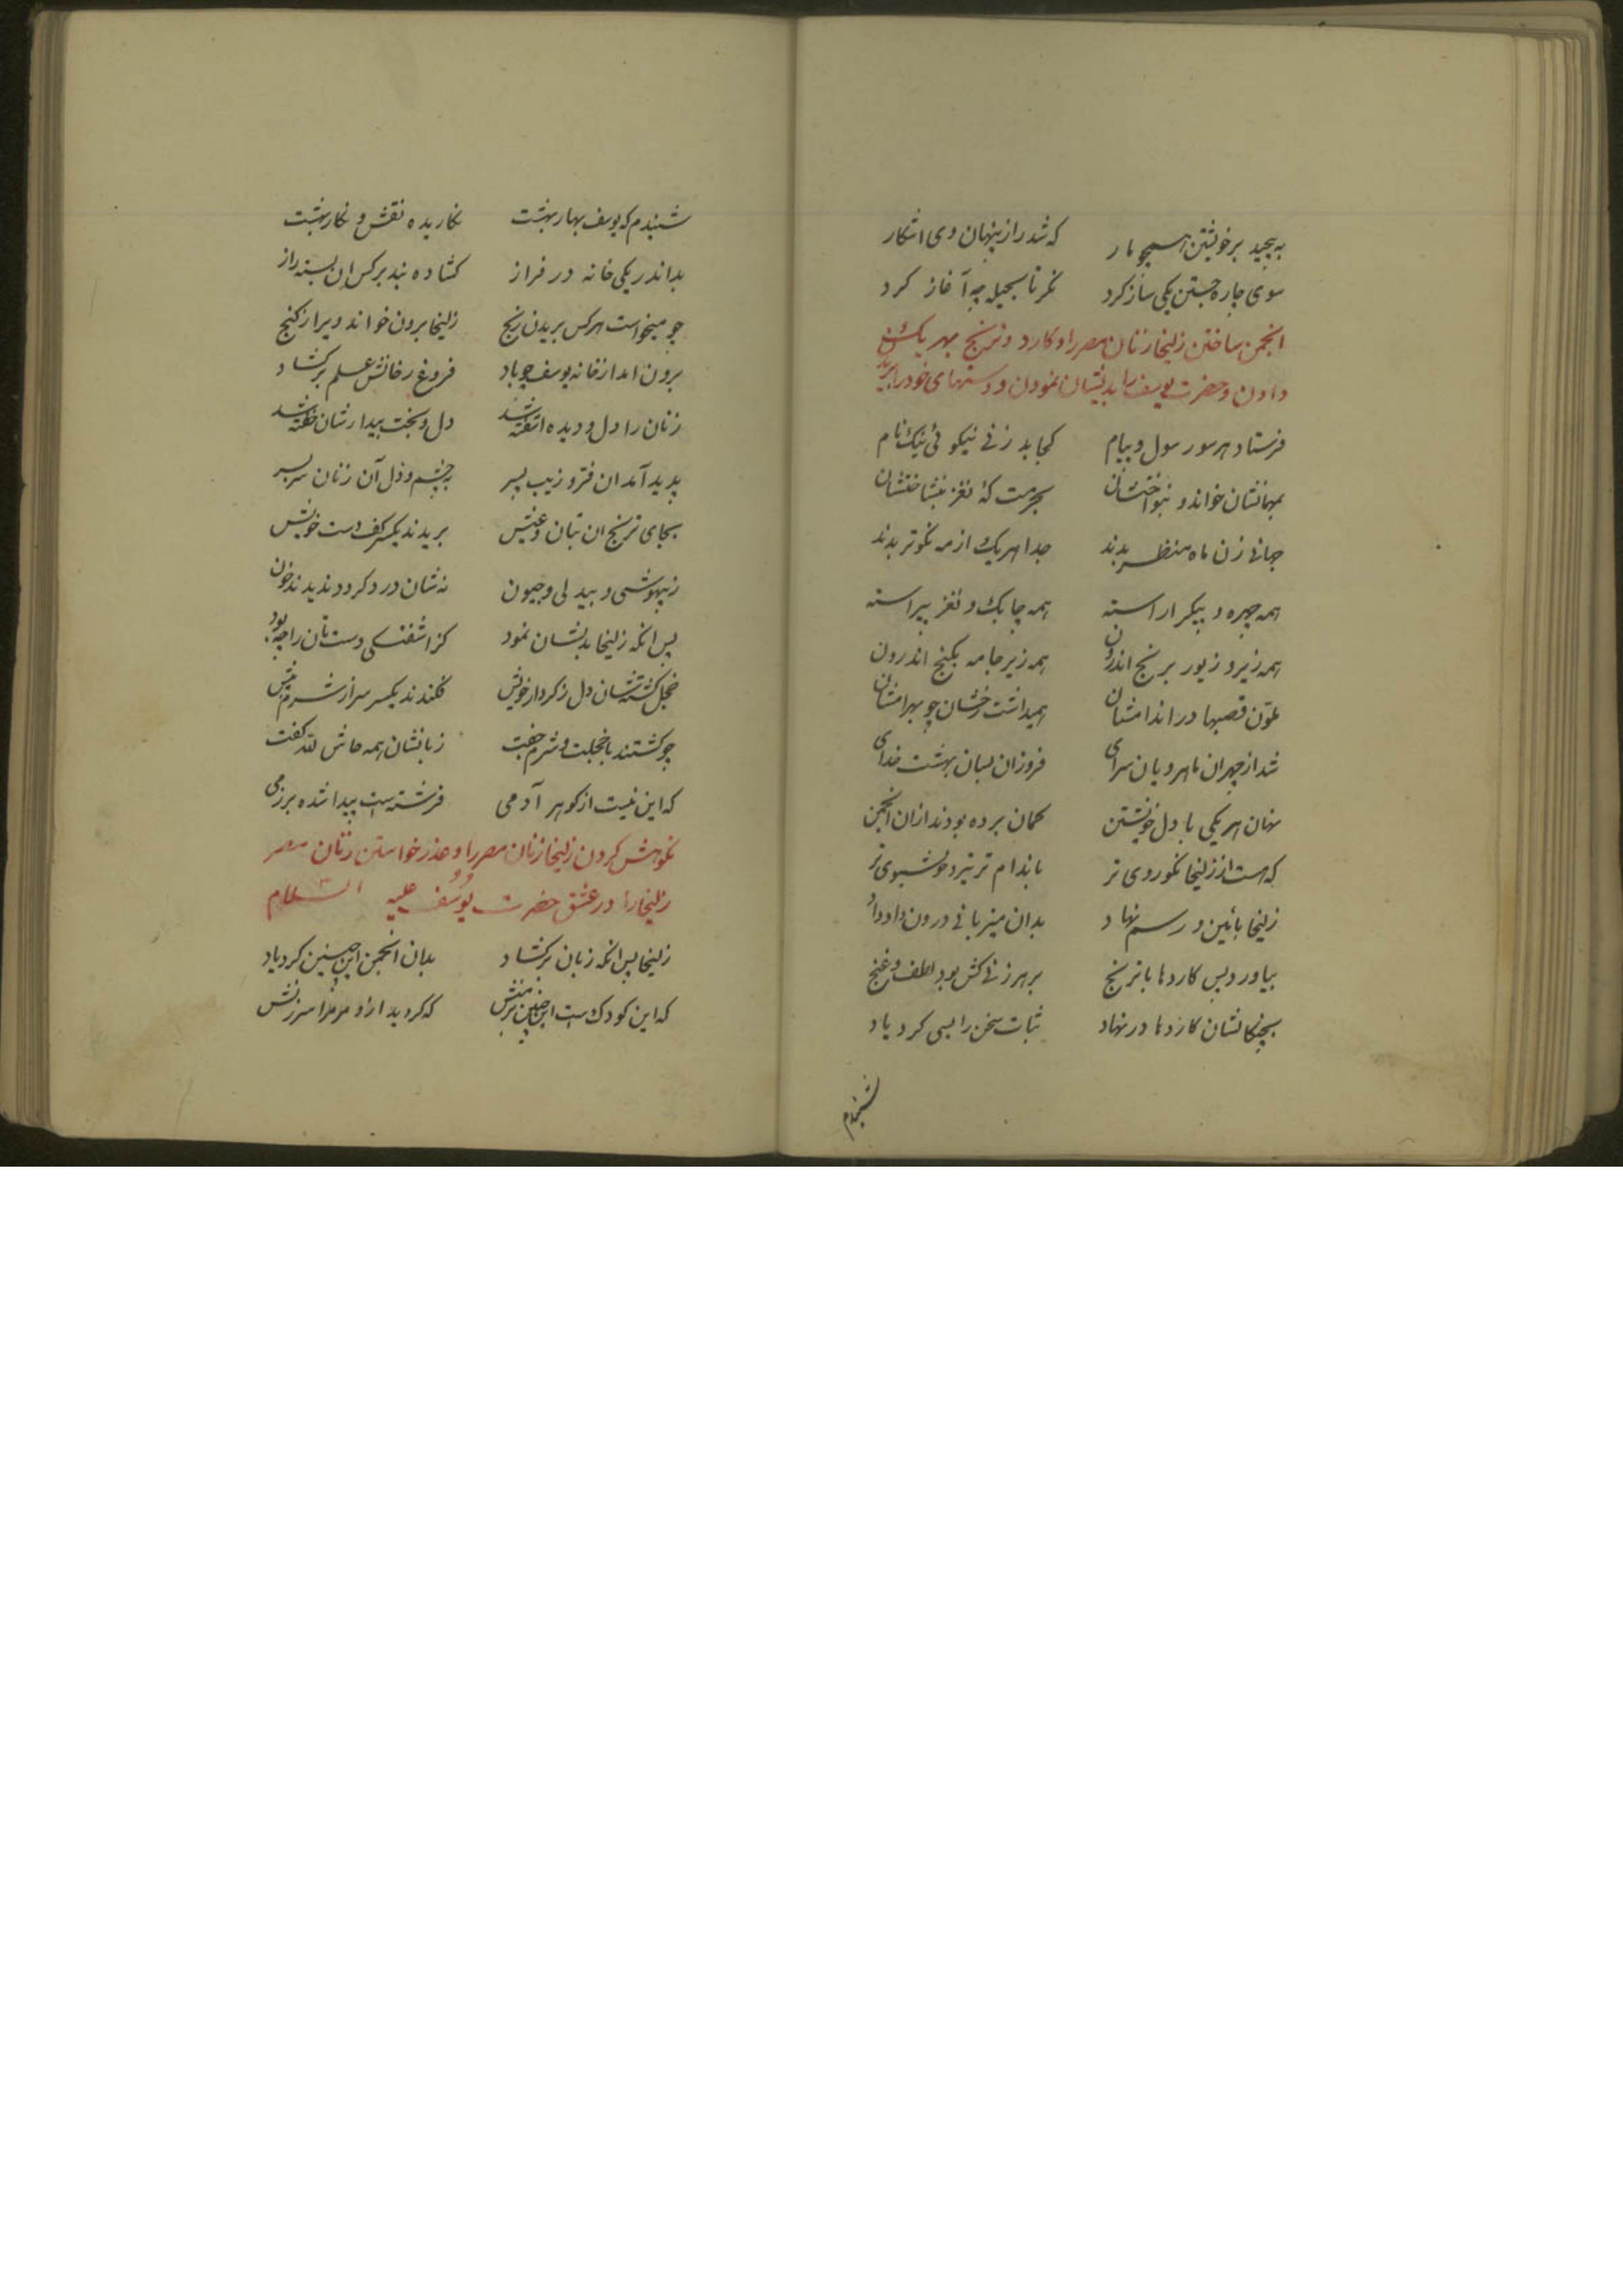 به پیچید بر خویشتن همچو مار که شد راز پنهان وی اشکار
سوی چاره جستن یکی ساز کرد نگر تا بحیله چه آغاز کرد
انجمن ساختن زلیخا زنان مصر را و کارد و ترنج بهر یک
دادن و حضرت یوسف را بدیشان نمودن و دستهای خود را بریدن
فرستاد هر سو رسول و پیام کجا بد زنی نیکوئی نیک نام
بمهمانشان خواند و بنواختشان بحرمت که نغز بنشاختشان
جهانی زن ماه منظر بدند جدا هر یک از مه نکوتر بدند
همه چهره و پیکر اراسته همه چابک و نغز پیراسته
همه زیر و زیور برنج اندرون همه زیر جامه بکنج اندرون
ملون قصبها در اندامشان همیداشت رخشان چو بهرامشان
شد از چهران ماهرویان سرای فروزان بسان بهشت خدای
نهان هر یکی با دل خویشتن کمان برده بودند ازان انجمن
که هست از زلیخا نکوروی تر باندام تر نیز و خوشبوی تر
زلیخا بائین و رسم نهاد بدان میزبانی درون داد داد
بیاورد پس کاردها با ترنج بر هر زنی کش بود لطف و غنج
بچنکالشان کاردها در نهاد ثبات سخن را بسی کرد یاد
شنیدم
شنیدم که یوسف بهار بهشت نکاریده نقش و نکار بهشت
بد اندر یکی خانه در فراز کشاده نبد بر کس ان بسته راز
چو میخواست هر کس بریدن ترنج زلیخا برون خواند ویرا ز کنج
برون امد از خانه یوسف چو باد فروغ رخانش علم بر کشاد
زنان را دل و دیده اشفته شد دل و بخت بیدارشان خفته شد
پدید آمد ان فتر و زیب پسر بچشم و دل آن زنان سر بسر
بجای ترنج ان بتان دغیش بریدند یکسر کف دست خویش
ز بیهوشی و بیدلی و جنون نه شان درد کرد و ندیدند خون
پس انکه زلیخا بدیشان نمود کز اشفتگی دستتان را چه بود
خجل کشتشان دل ز کردار خویش فکندند یکسر سر از شرم پیش
چو کشتند با خجلت و شرم جفت زبانشان همه حاش لله کفت
که این نیست از کوهر آدمی فرشته است پیدا شده بر زمی
نکوهش کردن زلیخا زنان مصر را و عذر خواستن زنان مصر
زلیخا را در عشق حضرت یوسف علیه السلام
زلیخا پس انکه زبان بر کشاد بدان انجمن این چنین کرد یاد
که این کودک است این چنین بر منش که کردید از او مر مرا سرزنش